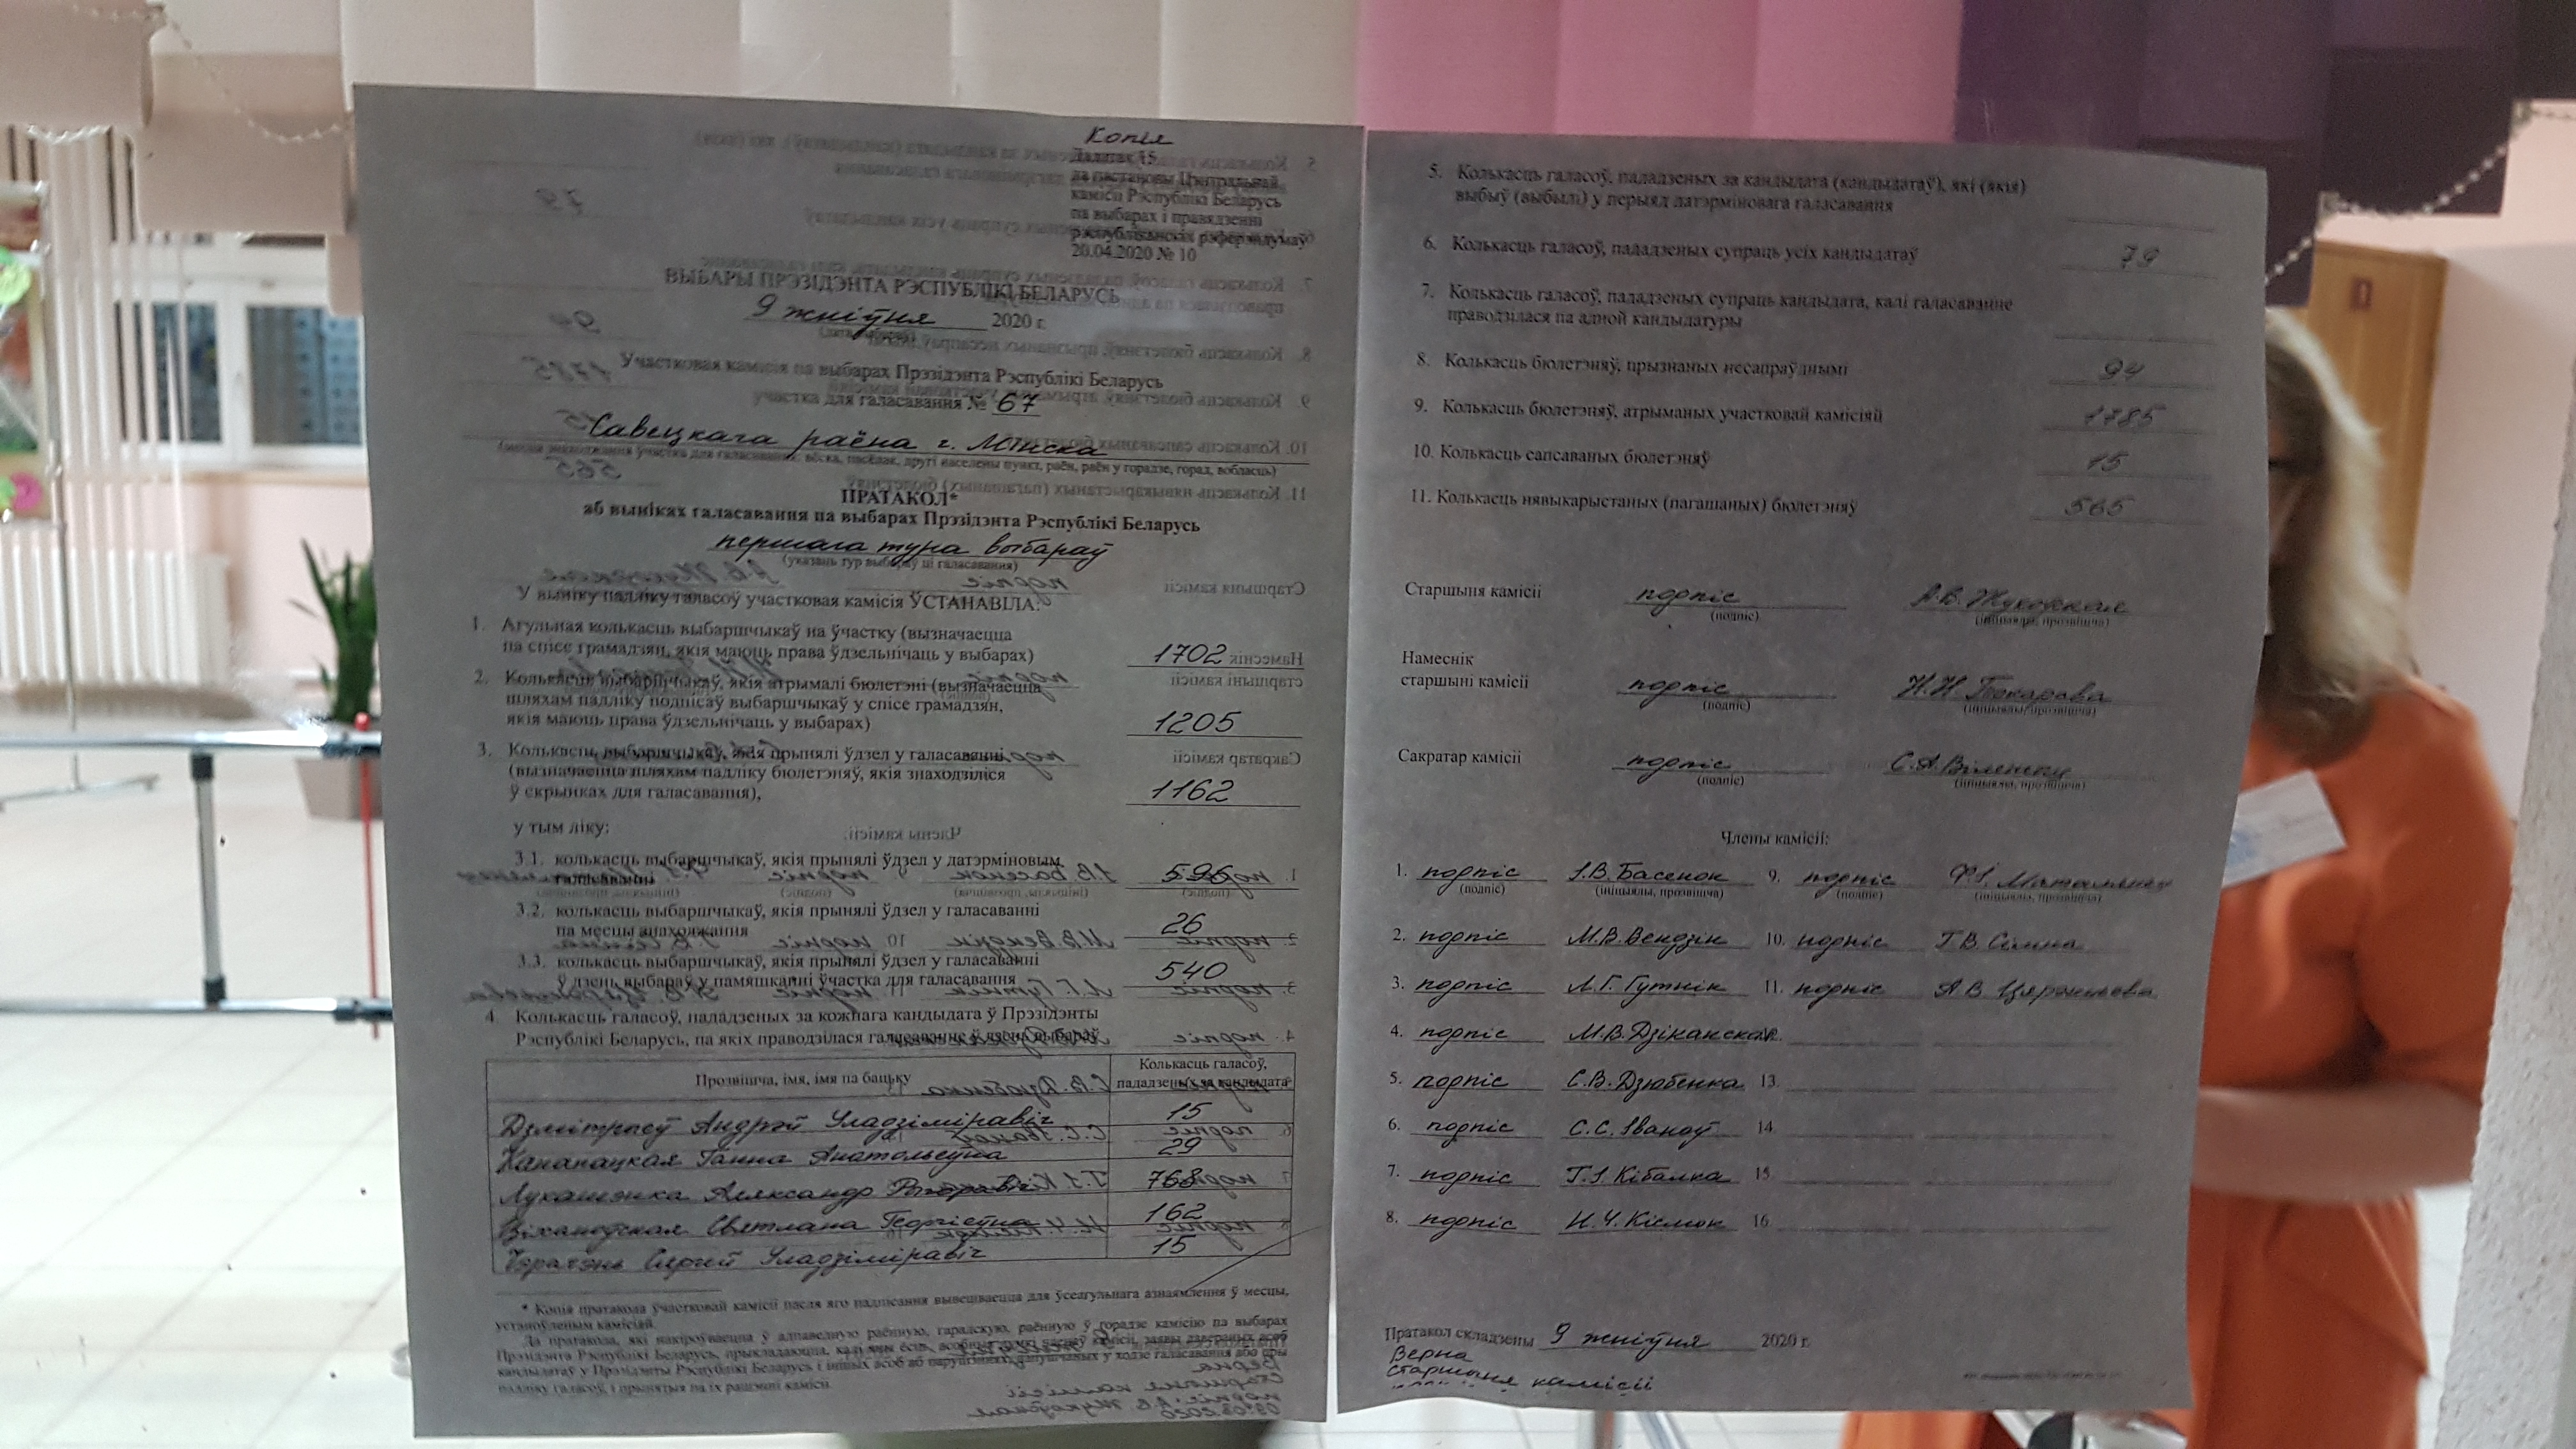 Копія
Дадатак 15
да пастановы Цэнтральнай
камісіі Рэспублікі Беларусь
па выбарах і правядзенні
рэспубліканскіх рэферэндумаў
20.04.2020 № 10
ВЫБАРЫ ПРЭЗІДЭНТА РЭСПУБЛІКІ БЕЛАРУСЬ
9 жніўня 2020 г.
Участковая камісія па выбарах Прэзідэнта Рэспублікі Беларусь
участка для галасавання № 67
Савецкага раёна г. Мінска
(месца знаходжання ўчастка для галасавання: вёска, пасёлак, другі населены пункт, раён, раён у горадзе, горад, вобласць)
ПРАТАКОЛ*
аб выніках галасавання па выбарах Прэзідэнта Рэспублікі Беларусь
першага тура выбараў
(указаць тур выбараў ці галасавання)
У выніку падліку галасоў участковая камісія ЎСТАНАВІЛА:
1. Агульная колькасць выбаршчыкаў на ўчастку (вызначаецца
па спісе грамадзян, якія маюць права ўдзельнічаць у выбарах) 1702
2. Колькасць выбаршчыкаў, якія атрымалі бюлетэні (вызначаецца
шляхам падліку подпісаў выбаршчыкаў у спісе грамадзян,
якія маюць права ўдзельнічаць у выбарах) 1205
3. Колькасць выбаршчыкаў, якія прынялі ўдзел у галасаванні
(вызначаецца шляхам падліку бюлетэняў, якія знаходзіліся
ў скрынках для галасавання), 1162
у тым ліку:
3.1. колькасць выбаршчыкаў, якія прынялі ўдзел у датэрміновым
галасаванні 596
3.2. колькасць выбаршчыкаў, якія прынялі ўдзел у галасаванні
па месцы знаходжання 26
3.3. колькасць выбаршчыкаў, якія прынялі ўдзел у галасаванні
ў дзень выбараў у памяшканні ўчастка для галасавання 540
4. Колькасць галасоў, пададзеных за кожнага кандыдата ў Прэзідэнты
Рэспублікі Беларусь, па якіх праводзілася галасаванне ў дзень выбараў
Прозвішча, імя, імя па бацьку
Колькасць галасоў,
пададзеных за кандыдата
Дзмітрыеў Андрэй Уладзіміравіч 15
Канапацкая Ганна Анатольеўна 29
Лукашэнка Аляксандр Рыгоравіч 768
Ціханоўская Святлана Георгіеўна 162
Чэрачэнь Сяргей Уладзіміравіч 15
* Копія пратакола ўчастковай камісіі пасля яго падпісання вывешваецца для ўсеагульнага азнаямлення ў месцы,
устаноўленым камісіяй.
Да пратакола, які накіроўваецца ў адпаведную раённую, гарадскую, раённую ў горадзе камісію па выбарах
Прэзідэнта Рэспублікі Беларусь, прыкладаюцца, калі яны ёсць, асобныя думкі членаў камісіі, заявы давераных асоб
кандыдатаў у Прэзідэнты Рэспублікі Беларусь і іншых асоб аб парушэннях, дапушчаных у ходзе галасавання або пры
падліку галасоў, і прынятыя па іх рашэнні камісіі.
5. Колькасць галасоў, пададзеных за кандыдата (кандыдатаў), які (якія)
выбыў (выбылі) у перыяд датэрміновага галасавання
6. Колькасць галасоў, пададзеных супраць усіх кандыдатаў 79
7. Колькасць галасоў, пададзеных супраць кандыдата, калі галасаванне
праводзілася па адной кандыдатуры
8. Колькасць бюлетэняў, прызнаных несапраўднымі 94
9. Колькасць бюлетэняў, атрыманых участковай камісіяй 1785
10. Колькасць сапсаваных бюлетэняў 15
11. Колькасць нявыкарыстаных (пагашаных) бюлетэняў 565
Старшыня камісіі подпіс А.В. Жукоўская
(подпіс) (ініцыялы, прозвішча)
Намеснік
старшыні камісіі подпіс Н.Н. Токарава
(подпіс) (ініцыялы, прозвішча)
Сакратар камісіі подпіс С.А.
(подпіс) (ініцыялы, прозвішча)
Члены камісіі:
1. подпіс І.В. Басенок 9. подпіс
(подпіс) (ініцыялы, прозвішча) (подпіс) (ініцыялы, прозвішча)
2. подпіс М.В. Вендзін 10. подпіс Г.В.
3. подпіс Л.Г. Гутнік 11. подпіс А.В.
4. подпіс М.В. Дзіканская
5. подпіс С.В. Дзюбенка 13.
6. подпіс С.С. Іваноў 14.
7. подпіс Г.І. Кібалка 15.
8. подпіс 16.
Пратакол складзены 9 жніўня 2020 г.
Верна
Старшыня камісіі